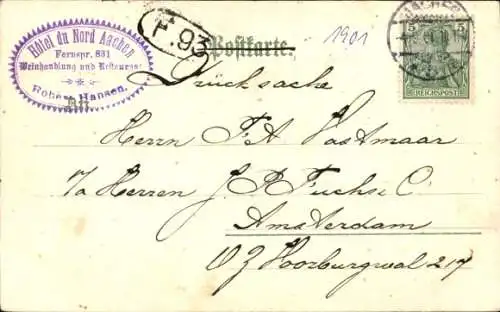 Hôtel du Nord Aachen
Fernspr. 831
Weinhandlung und Restaurant
Hansen.
An
F. 93
Postkarte.
1901
AACHEN
5
5
REICHSPOST
Drucksache
Herrn F A Vastmaar
p/a Herren J P Fuchs & C.
Amsterdam
O Z Voorburgwal 217